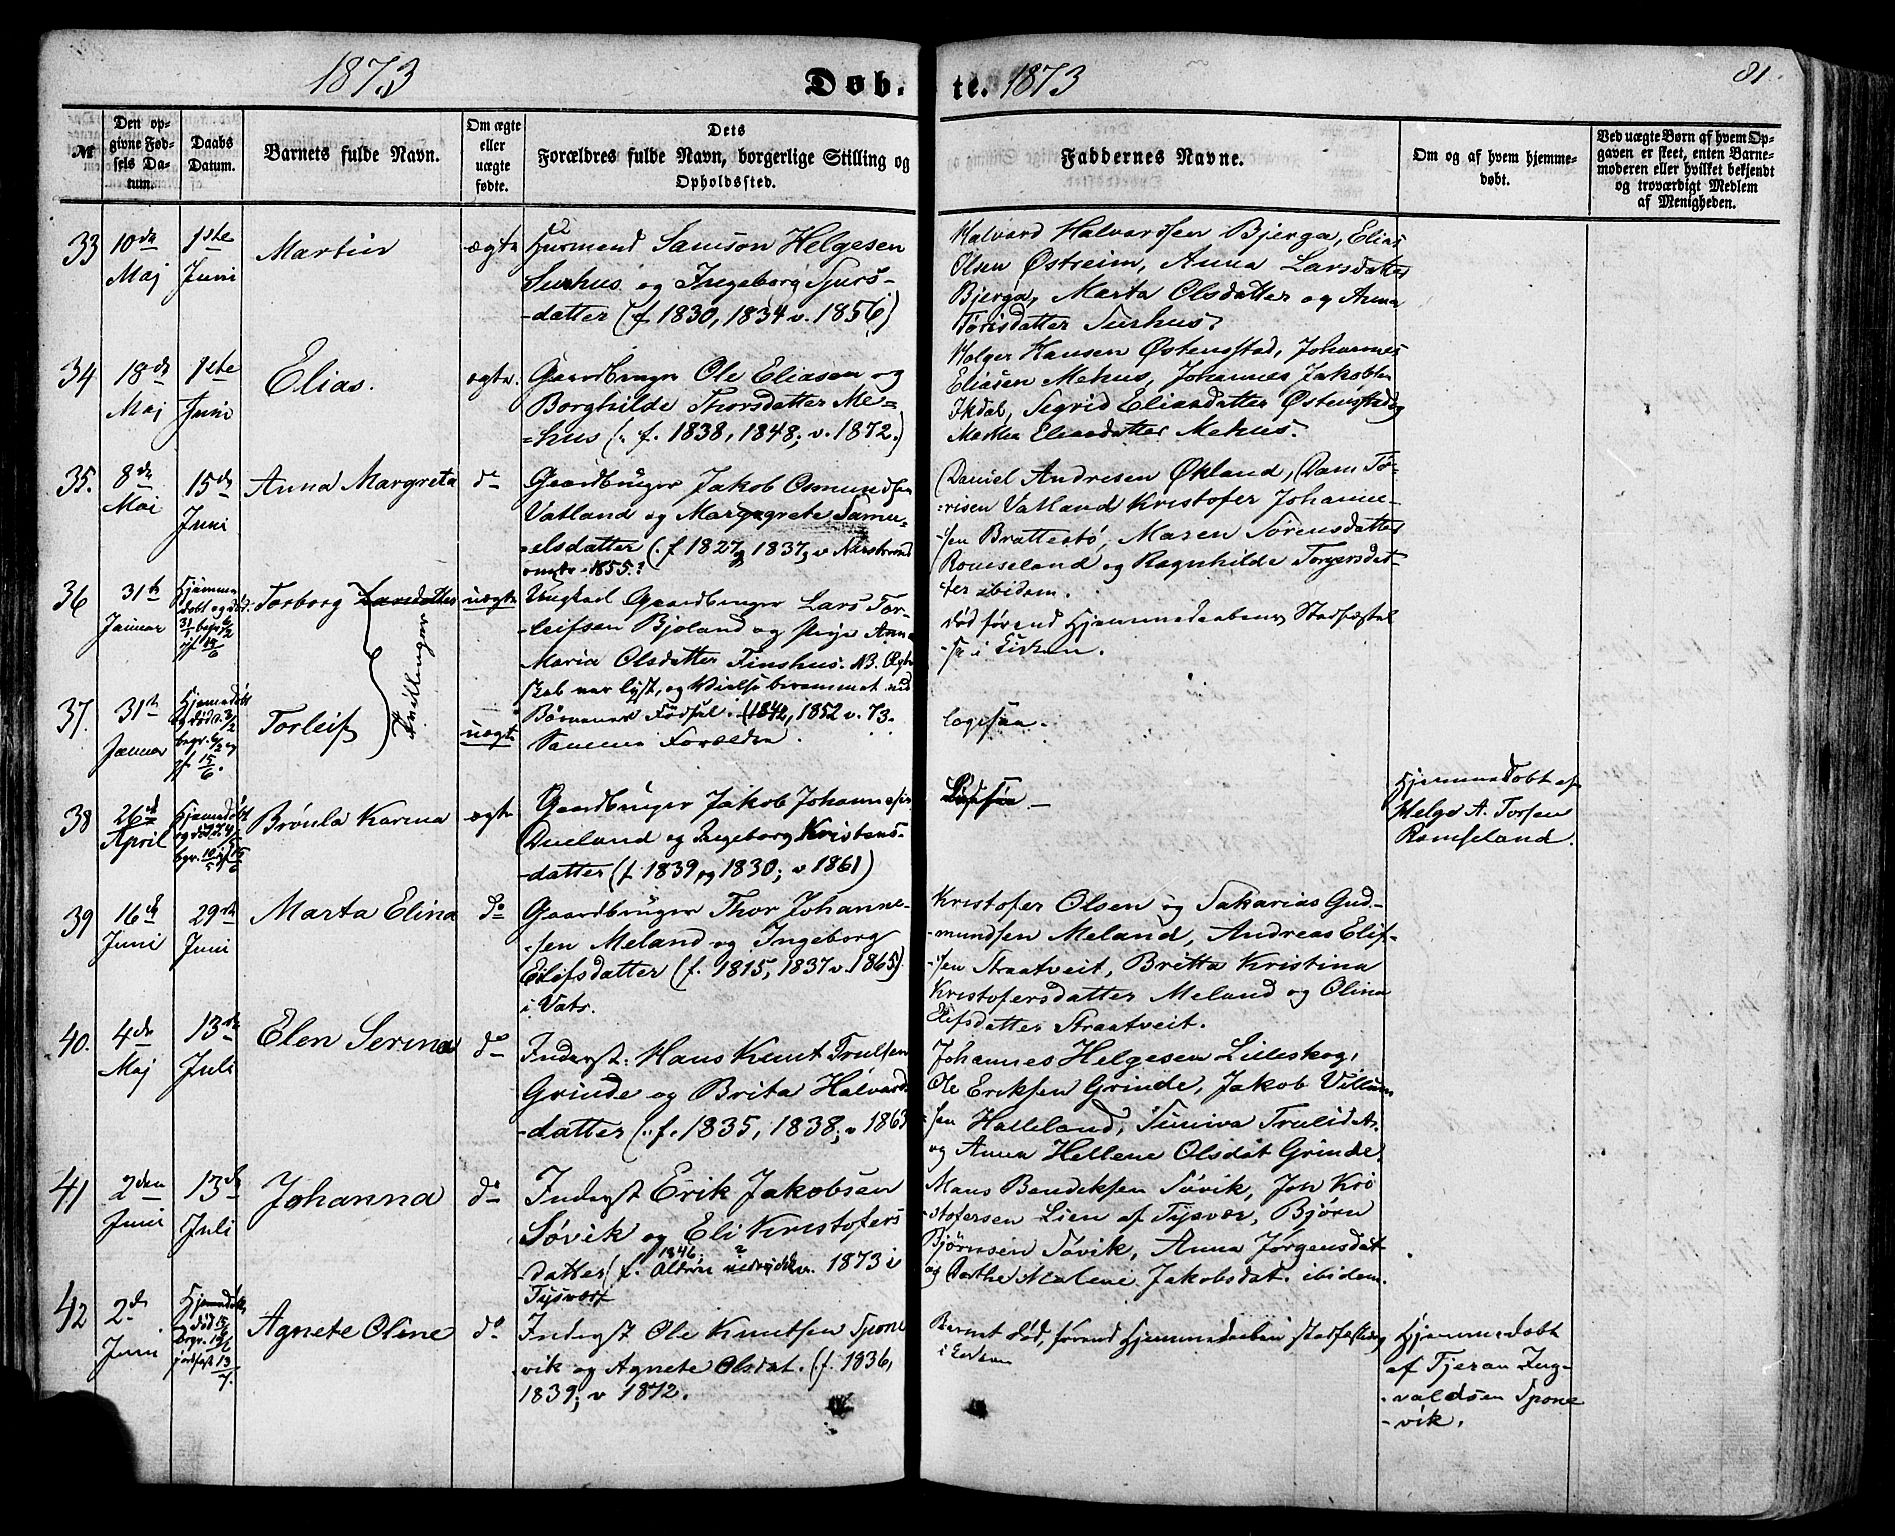 1873
Døb-
te. 1873
81.
№
Den op-
givne Fød-
sels Da-
tum.
Daabs
Datum.
Barnets fulde Navn.
Om ægte
eller
uægte
fødte.
Dets
Forældres fulde Navn, borgerlige Stilling og
Opholdssted.
Faddernes Navne.
Om og af hvem hjemme-
døbt.
Ved uægte Børn af hvem Op-
gaven er skeet, enten Barne-
moderen eller hvilket bekjendt
og troværdigt Medlem
af Menigheden.
33
10de
Maj
1ste
Juni
Martin
ægte
Husmand Samson Helgesen
og Ingeborg Sjurs-
-datter (f. 1830, 1834 v. 1856)
Halvard Halvardsen Bjerga, Elias
Olsen Østreim, Anna Larsdatter
Bjerga, Marta Olsdatter og Anna
34
18de
Maj
1ste
Juni
Elias.
ægte.
Gaardbruger Ole Eliasen og
Borghilde Thorsdatter Me-
-hus (. f. 1838, 1848; v. 1872.)
Holger Hansen Østensstad, Johannes
Eliasen Mehus, Johannes Jakobsen
Ikdal, Segrid Eliasdatter Østenstad og
Eliasdatter Mehus.
35.
8de
Mai
15de
Juni
Anna Margreta
do
Gaardbruger Jakob Osmundsen
Vatland og Margrete Samu-
-elsdatter (. f 1827 og 1837, v Nerstrand
1855.)
Daniel Andresen Økland, Tø-
-risen Vatland Kristofer Johanne-
-sen Brattestø, Maren Sørensdatter
Romseland og Ragnhilde Torgersdat-
ter ibidem.
36
31te
Januar
Hjemme-
døbt og død
31/1 begr. 6/2
jf 15/6
Torborg Larsdatter
Tvillinger
uægte
Ungkarl Gaardbruger Lars Tor-
-leifsen Bjoland og Pige Anna
Maria Olsdatter Finshus. NB. Ægte-
skab var lyst, og Vielse berammet ved
Børnenes Fødsel. (1842, 1852 v. 73.
død førend Hjemmedaabens Stadfæstel-
-se i Kirken.
37.
31te
Januar
Hjemmedøbt
og død 3/2
begr. 6/2 og
jf. 15/6.
Torleif
uægte
Samme Forældre.
ligesaa.
38
26de
April
Hjemmedøbt
begr. 10/5 jf 15/6
Brónla Karina
ægte
Gaardbruger Jakob Johannesen
Dueland og Ingeborg Kristens-
-datter (f 1839 og 1830; v 1861)
Ligesaa —
Hjemmedøbt af
Helge A. Torsen
Romseland.
39
16de
Juni
29de
Juni
Marta Elina
do
Gaardbruger Thor Johanne-
-sen Meland og Ingeborg
Eilifsdatter (f. 1815, 1837 v. 1865)
i Vats.
Kristofer Olsen og Sakarias Gud-
-mundsen Meland, Andreas Elif-
-sen Straatveit, Britta Kristina
Kristofersdatter Meland og Olina
Elifsdatter Straatveit.
40.
4de
Maj
13de
Juli
Elen Serina
do
Inderst: Hans Knut Trulsen
Grinde og Brita Halvards
-datter (.f. 1835, 1838; v 1863
Johannes Helgesen Lilleskog,
Ole Eriksen Grinde, Jakob Villum-
-sen Halleland, Suniva Trulsd.
og Anna Hellene Olsdat Grinde.
41
2den
Juni
13de
Juli
Johanna
do
Inderst Erik Jakobsen
Søvik og Eli Kristofers
-datter (f. 1846; Alderen 1873 i
Tysvær
Mans Bendiksen Søvik, Jon Kri
-stofersen Lien af Tysvær, Bjørn
Bjørnsen Søvik, Anna Jørgensdat-
og Dorthe Malene Jakobsdat. ibidem.
42
2de
Juni
Hjemmedøbt,
død 15/6
begr. 19/6
jordfæst 13/7.
Agnete Oline
do
Inderst Ole Knutsen Spone
vik og Agnete Olsdat. (f. 1836,
1839; v 1872.
Barnet død, førend Hjemmedaaben stadfæstedes
i Kirken
Hjemmedøbt
af Tjeran Ing-
-valdsen Spone
-vik.